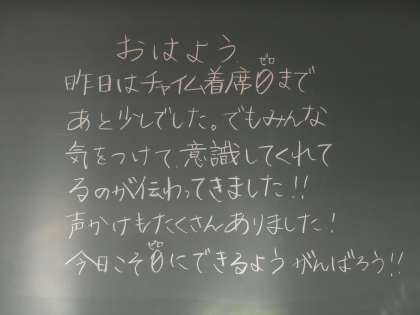 おはよう
昨日はチャイム着席0ゼロまで
あと少しでした。でもみんな
気をつけて、意識してくれて
るのが伝わってきました!!
声かけもたくさんありました!
今日こそ0ゼロにできるようがんばろう!!